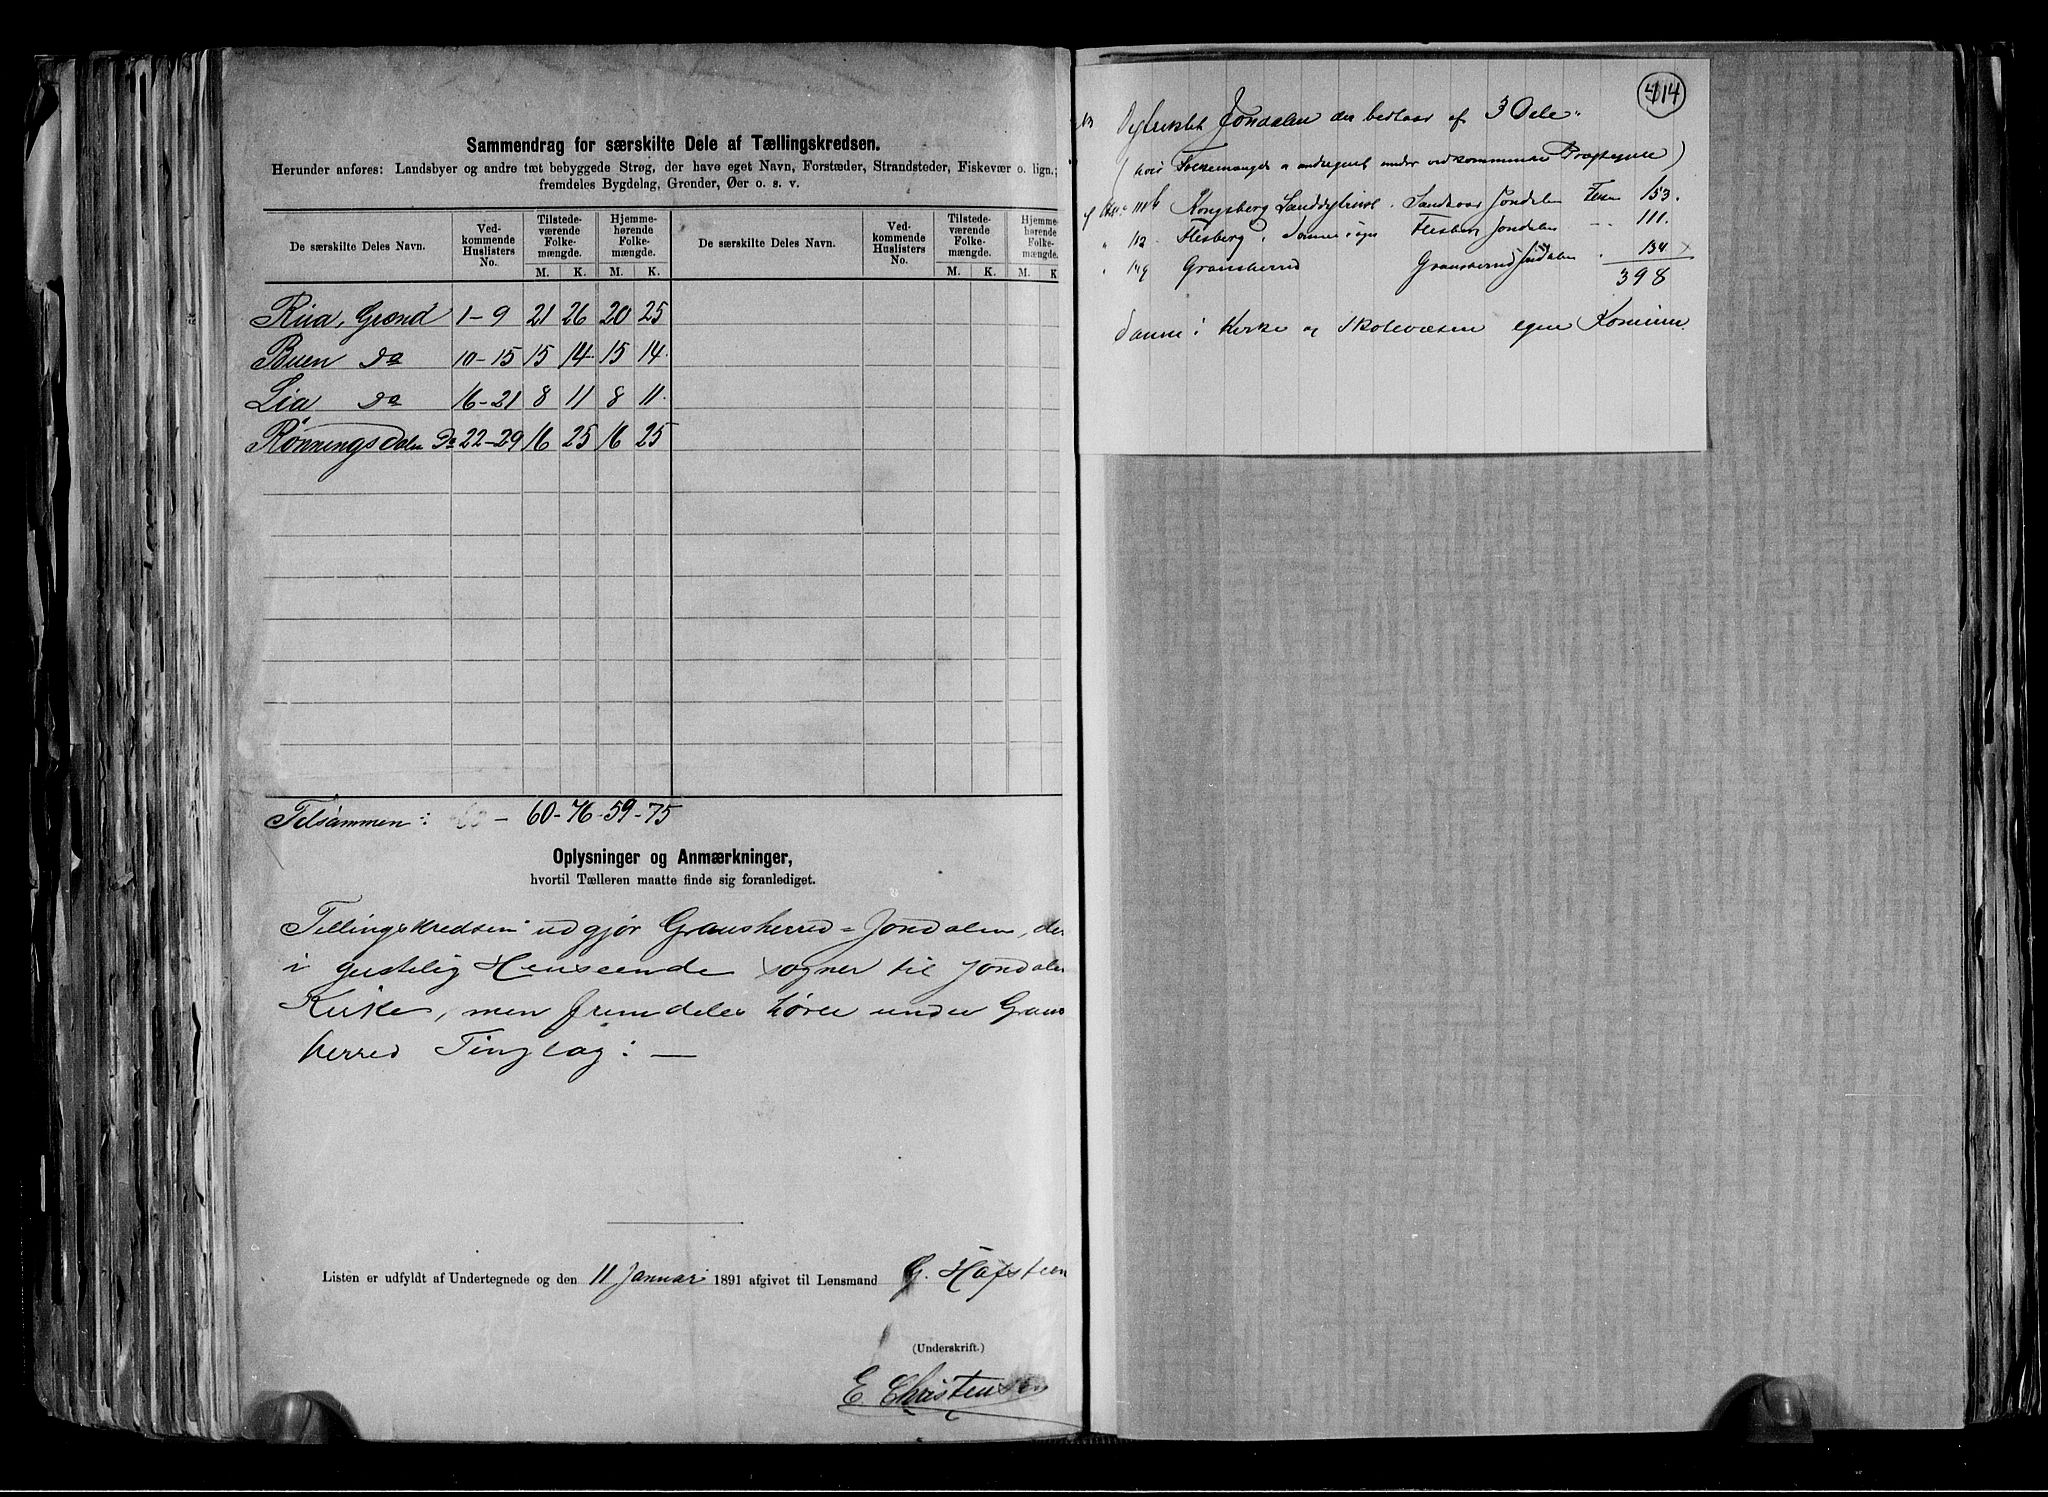 Sammendrag for særskilte Dele af Tællingskredsen.
Herunder anføres: Landsbyer og andre tæt bebyggede Strøg, der have eget Navn, Forstæder, Strandsteder, Fiskevær o. lign.;
fremdeles Bygdelag, Grender, Øer o. s. v.
De særskilte Deles Navn. Ved-kommende Huslisters No. Tilstede-værende Folke-mængde. Hjemme-hørende Folke-mængde. De særskilte Deles Navn. Ved-kommende Huslisters No. Tilstede-værende Folke-mængde. Hjemme-hørende Folke-mængde.
M. K. M. K. M. K. M. K
Rua, Grænd 1-9 21 26 20 25
Buen Do 10-15 15 14 15 14
Lia Do 16-21 8 11 8 11
Rønningsdalen Do 22-29 16 25 16 25
Tilsammen: - 60-76-59-75
Oplysninger og Anmærkninger,
hvortil Tælleren maatte finde sig foranlediget.
Tellingskredsen udgjør Gransherred-Jondalen, der
i geistelig Henseende sogner til Jondalen
Kirke, men fremdeles hører under Grans
herred Tinglag: —
Listen er udfyldt af Undertegnede og den 11 Januar 1891 afgivet til Lensmand G. Hafsteen
(Underskrift.)
E Christensen
414
Jondalen der bestaar af 3 Dele
(hvis Folkemængde er andregnet under vedkommende)
Kongsberg Landdistrikt. Sandsvær Jondalen 153.
" 112 Flesberg. Flesberg Jondalen - 111.
" 119 Gransherred Gransherred Jondalen 134 x
398
Danne i Kirke og Skolevæsen egen Kommun.